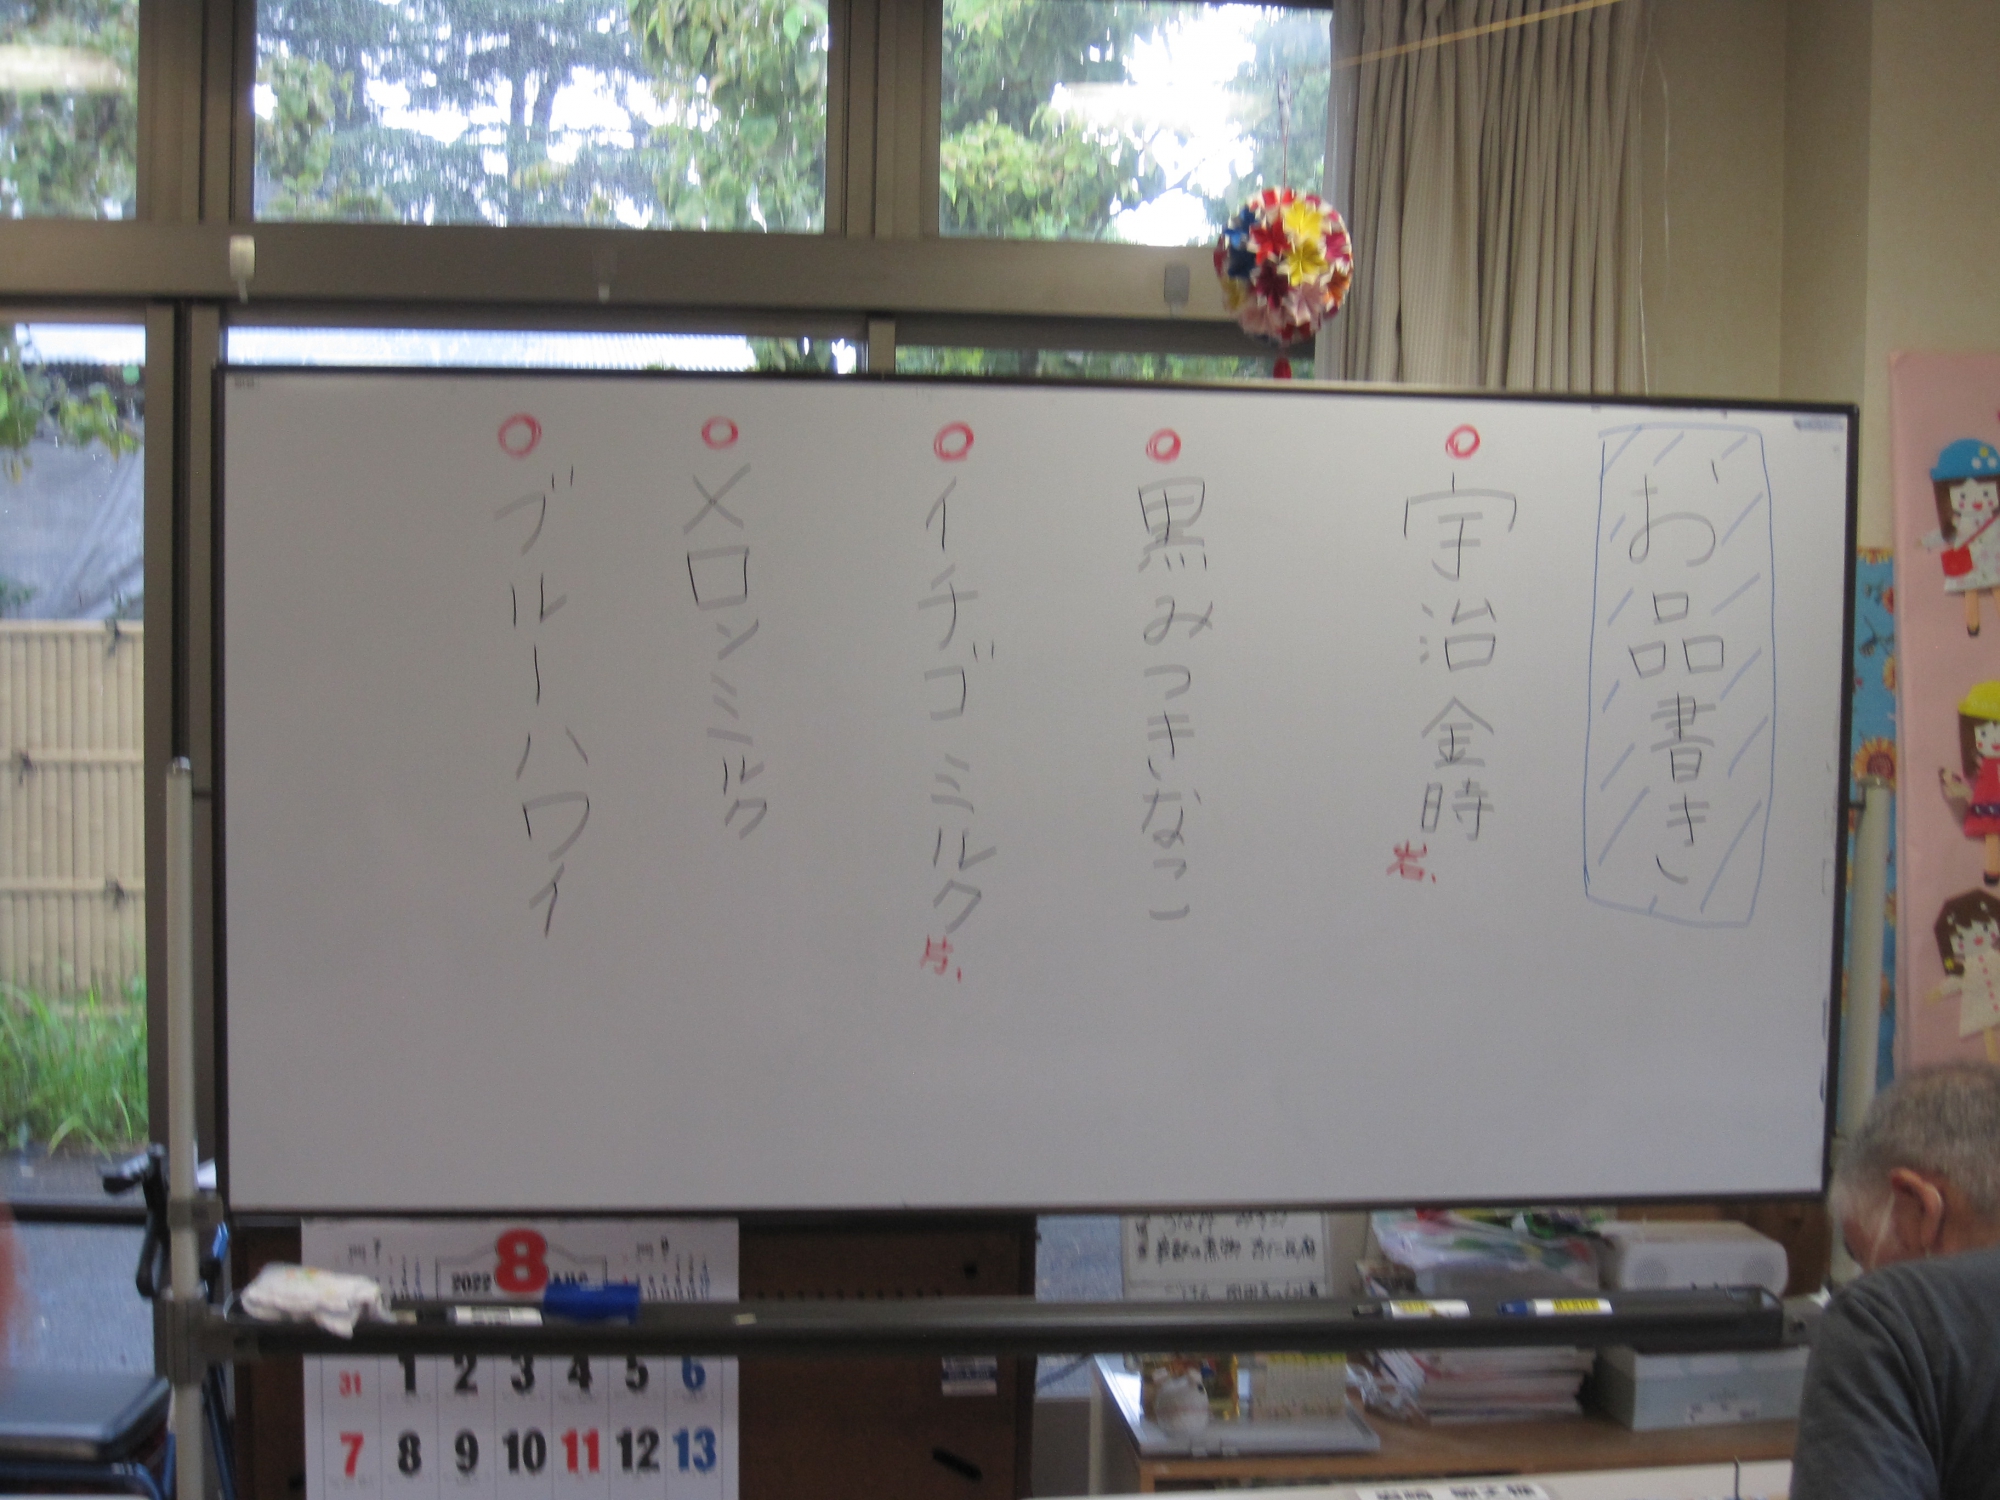 お品書き
宇治金時
岩、
黒みつきなこ
イチゴミルク
片、
メロンミルク
ブルーハワイ
8
2022
31 1 2 3 4 5 6
7 8 9 10 11 12 13